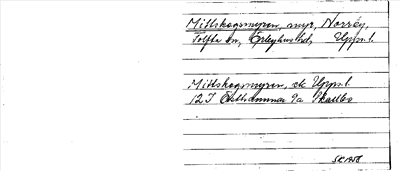 Mittskogsmyren, myr, Norrby,
Tolfta sn, Örbyhus hd, Uppm. l.
Mittskogsmyren, ek Uppm. l.
12 I Östhammar 9a Skällbo
SR 1958